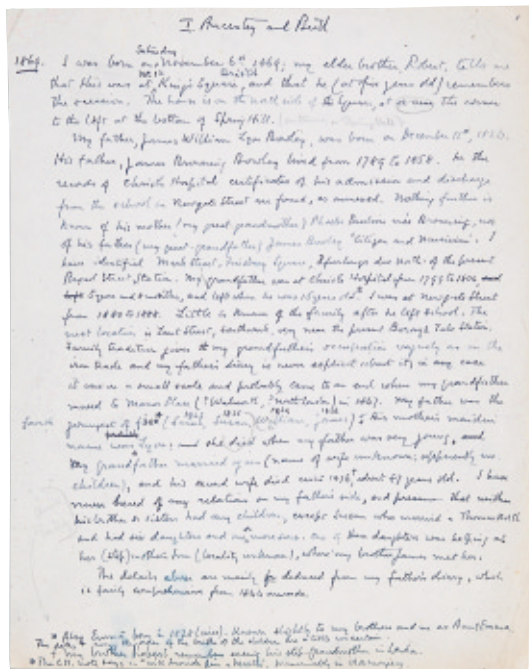 I Ancestry and Birth
Saturday
1869. I was born on November 6th 1869; my elder brother, Robert, tells me
No. 12 Bristol
that this was at King's Square, and that he (at five years old) remembers
the occasion. The house is on the north side of the Square, at or near the corner
to the left at the bottom of Spring Hill.
My father, James William Lyon Bowley, was born on December
His father, James Browning Bowley lived from 1789 to 1858. In the
records of Christ's Hospital certificates of his admission and discharge
from the school in Newgate Street are found, as annexed. Nothing further is
known of his mother (my great grandmother) Phoebe née Browning, nor
of his father (my great-grandfather) James Bowley "Citizen and Musician". I
have identified Street, Finsbury Square, due north of the present
Street Station. My grandfather was at Christ's Hospital from 1797 to 1804,
5 years and months, and left when he was 15 years old. I was at Newgate Street
from 1880 to 1888. Little is known of the family after he left School. The
next location is Lant Street, Southwark, very near the present Borough Tube Station.
Family tradition gives my grandfather's occupation vaguely as in the
iron trade and my father's diary is never explicit about it; in any case
it was on a small scale and probably came to an end when my grandfather
moved to Manor Place (? Walworth, South London) in 1847. My father was the
fourth youngest of (Sarah, Susan, William, James). His mother's maiden
name was Lyon; and she died when my father was very young, and
my grandfather married again (name of wife unknown; apparently no
children), and his second wife died circa 1876, about 87 years old. I have
never heard of any relations on my father's side, and presume that neither
his brother or sisters had any children, except Susan who married a Thomas North
and had six daughters and more sons. One of these daughters was helping at
her (step) mother's home (locality unknown), where my brother James met her.
The details above are mainly deduced from my father's diary, which
is fairly comprehensive from 1844 onwards.
* born in 1828 (circa). Known slightly to my brothers and me as Aunt Emma.
my brother Robert remembers seeing his step-grandmother in London.